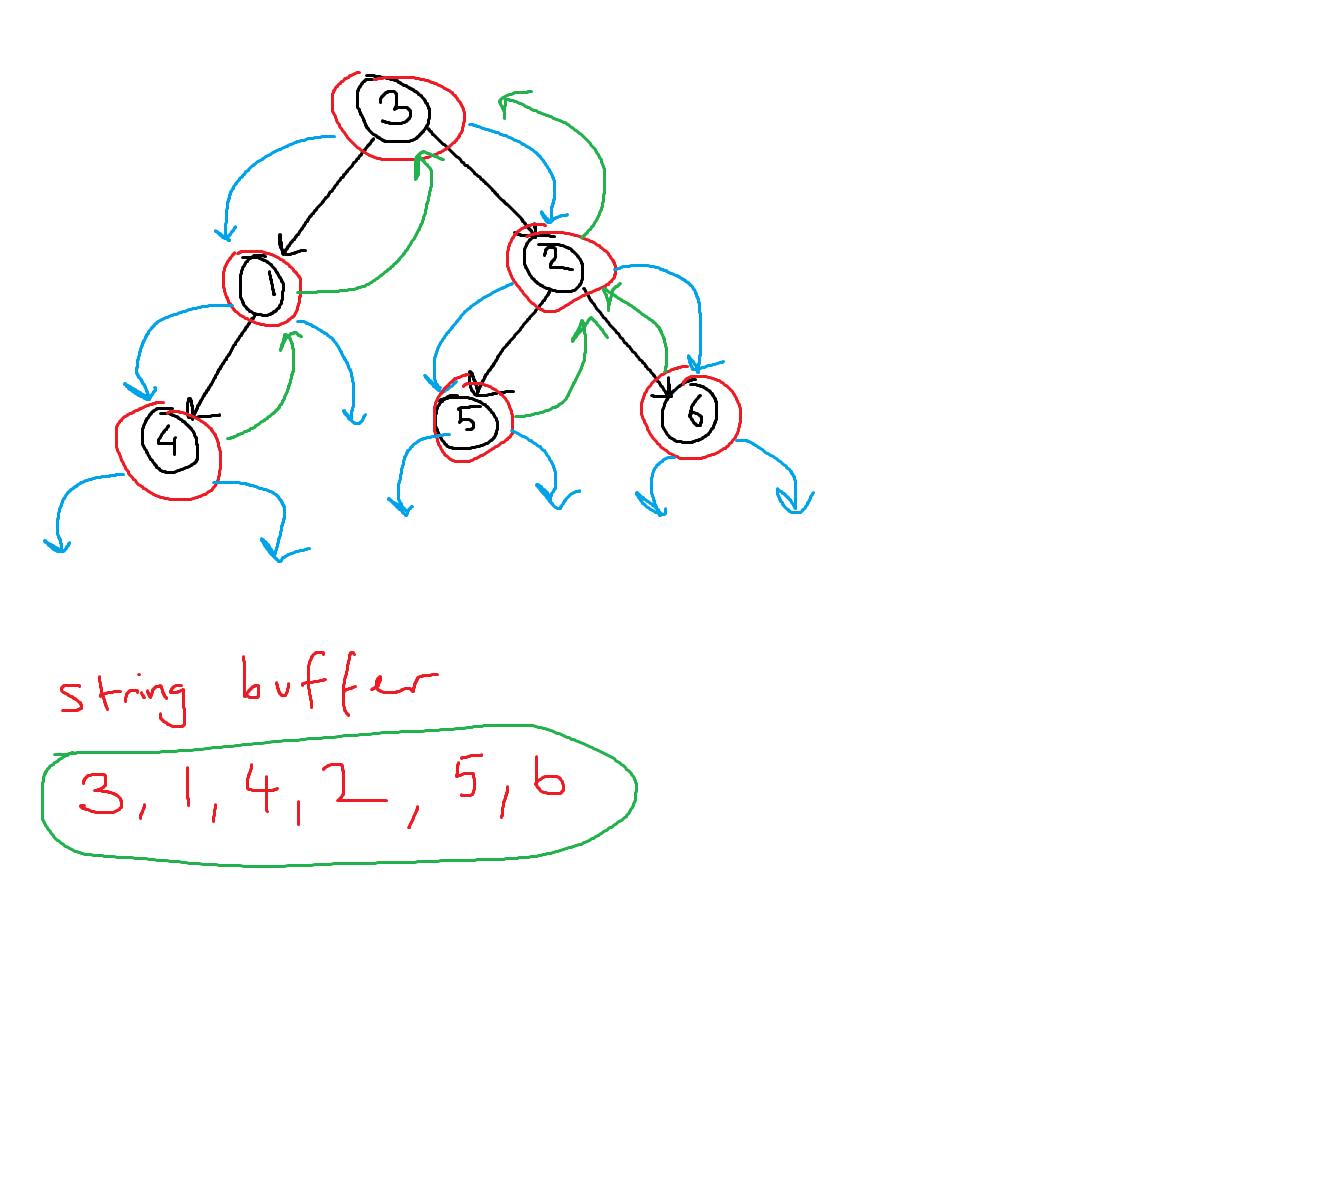 3
1
2
4
5
6
string buffer
3, 1, 4, 2, 5, 6